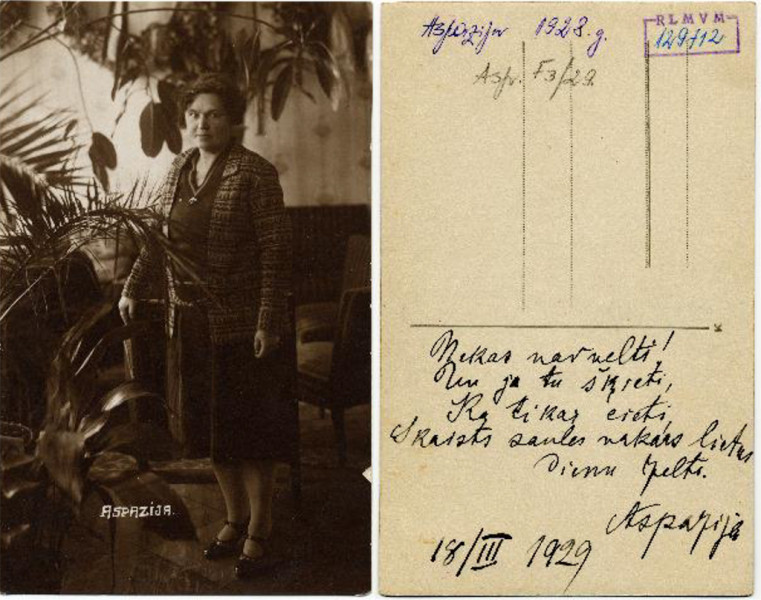 ASPAZIJA.
Aspazija 1928. g.
RLMVM
129412
Asp. F3/29.
K
Nekas nav velti!
Un ja tu šķieti,
Ka tikai cieti,
Skaists saules vakars lietus
Dienu pelts.
Aspazija
18/III 1929